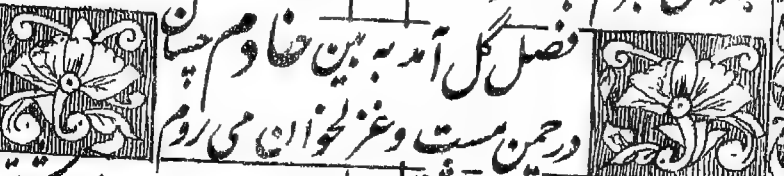 فصل گل آمد به بین خادم چسان
در چمن مست و غزلخوان می روم